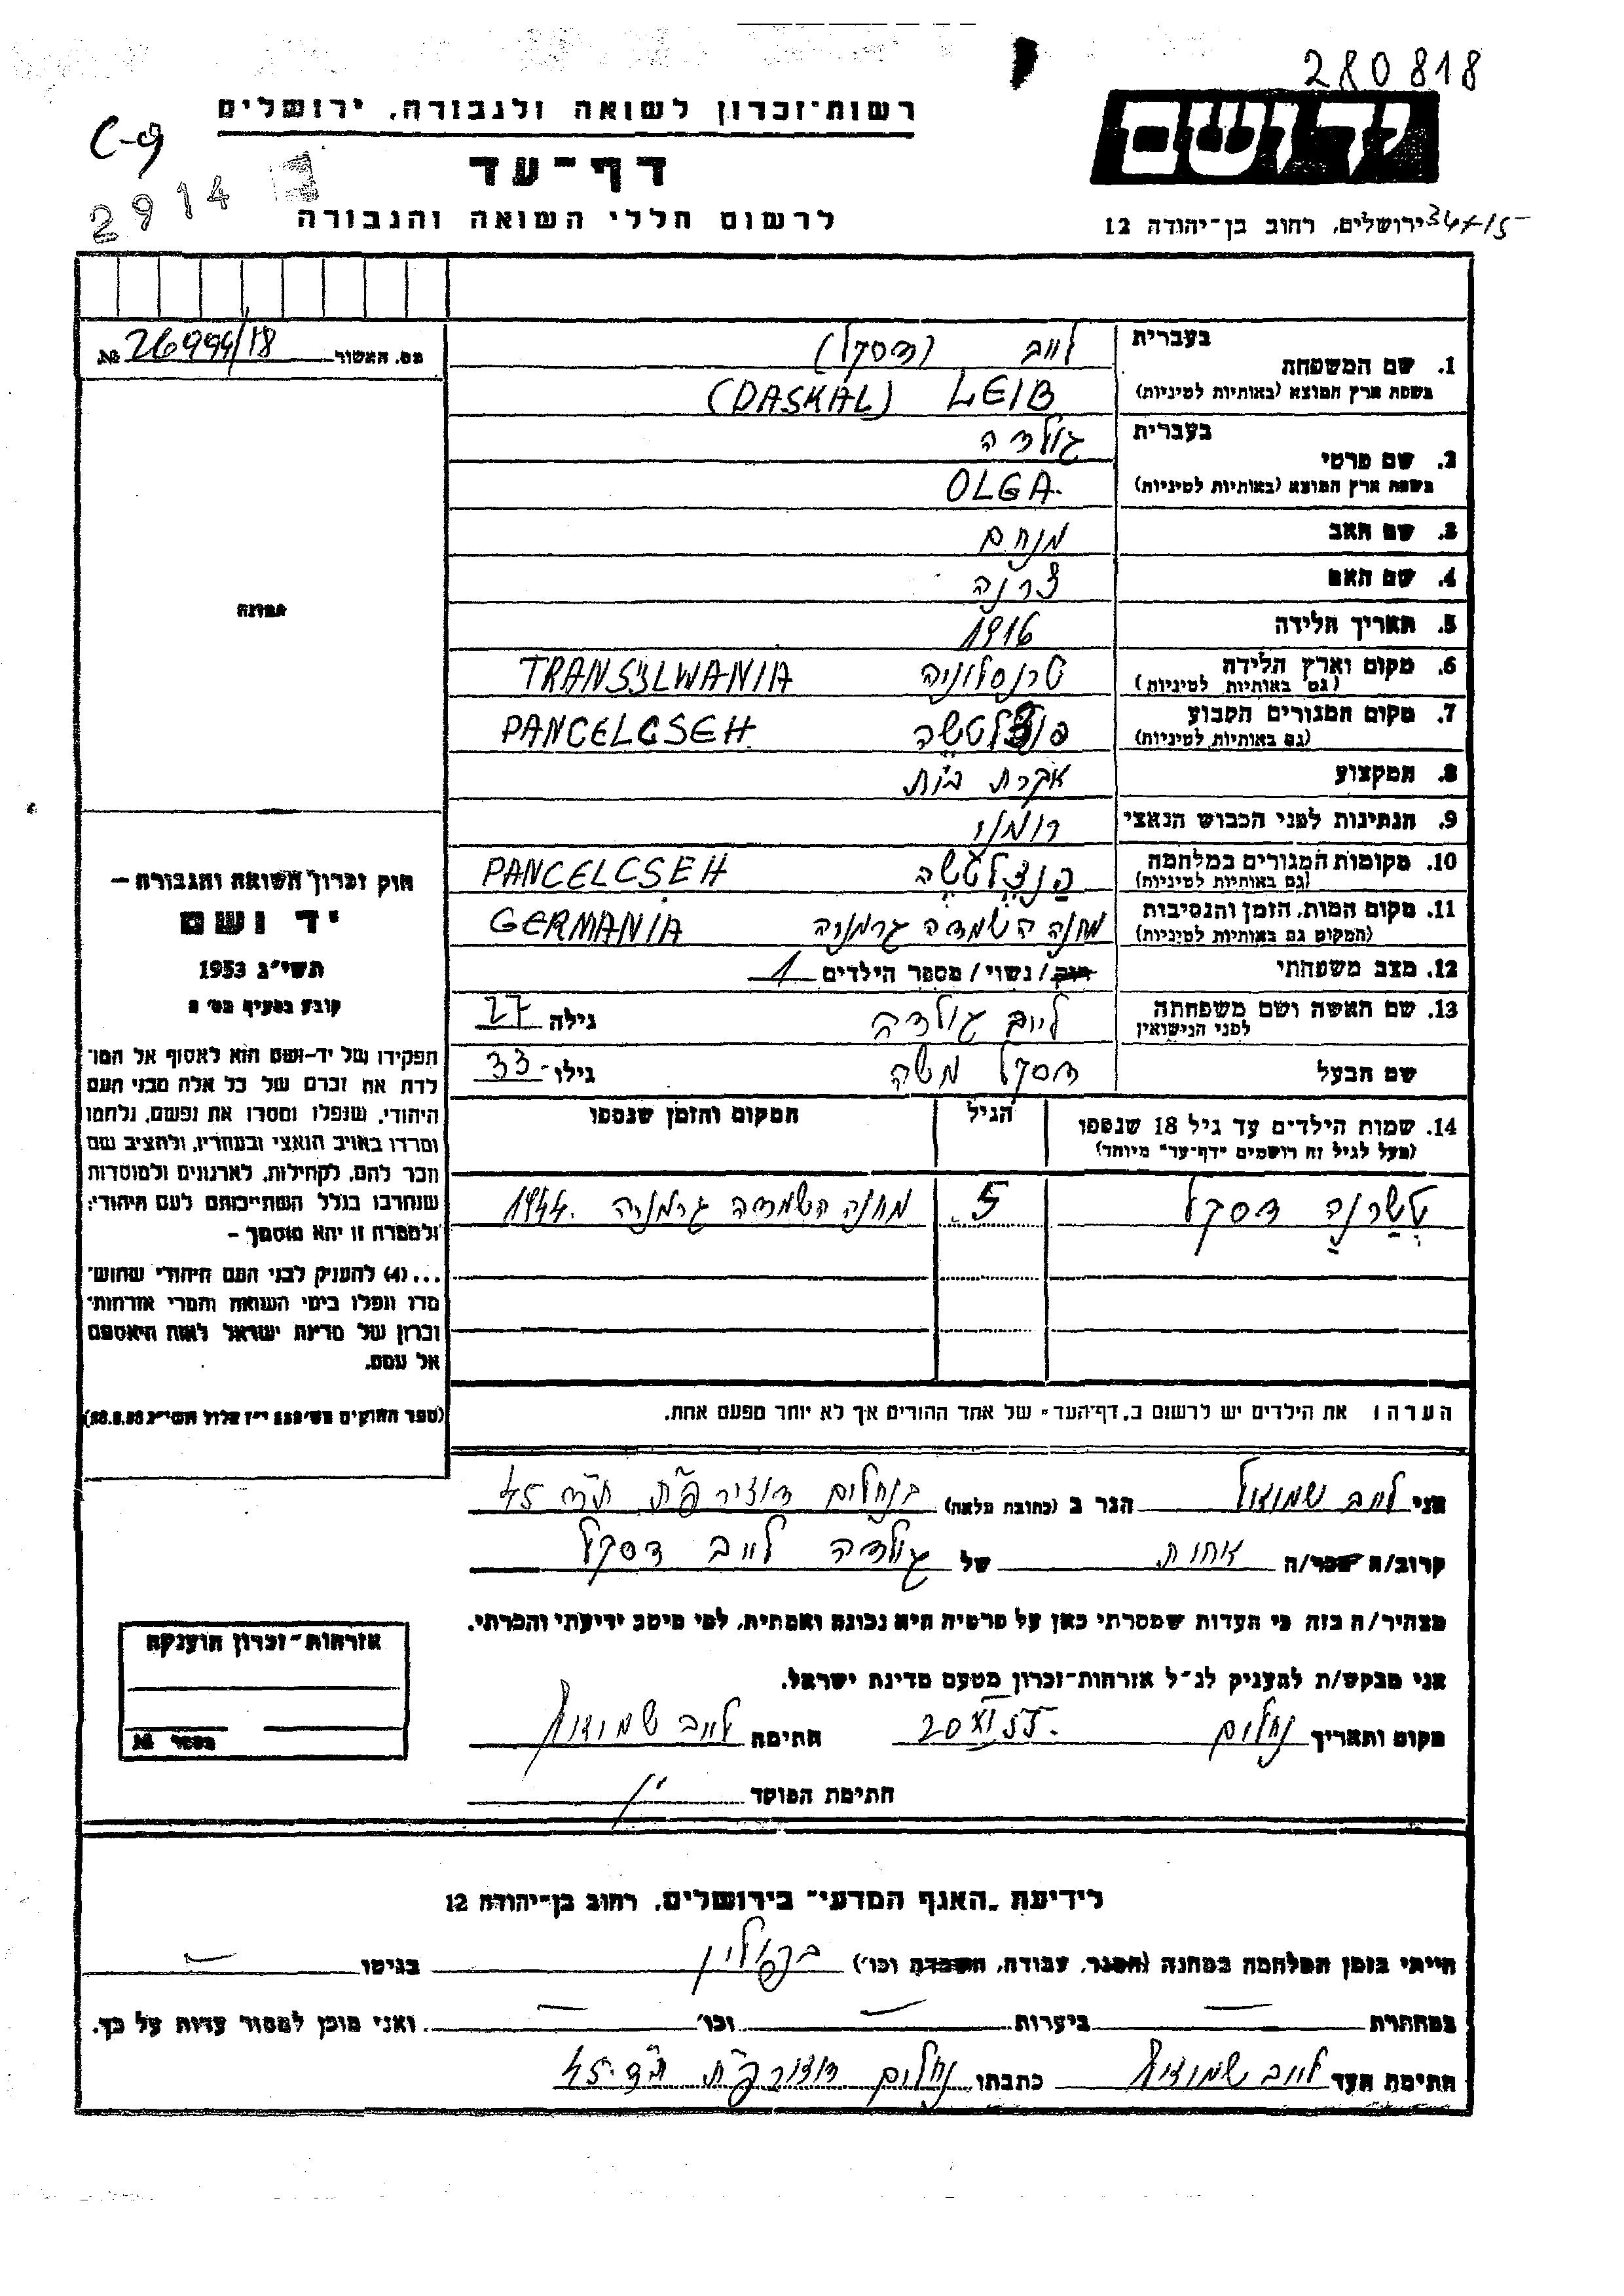 280818
רשות־זכרון לשואה ולגבורה, ירושלים
יד ושם
C-9
דף־עד
2914
לרשום חללי השואה והגבורה
ירושלים, רחוב בן־יהודה 12
מס. האשור № 26994/18
1. שם המשפחה בעברית לייב (דסקל)
בשפת ארץ המוצא (באותיות לטיניות) LEIB (DASKAL)
2. שם פרטי בעברית גולדה
בשפת ארץ המוצא (באותיות לטיניות) OLGA.
3. שם האב מנחם
4. שם האם צרנה
5. תאריך הלידה 1916
6. מקום וארץ הלידה טרנסלוניה TRANSYLWANIA
(גם באותיות לטיניות)
7. מקום המגורים הקבוע פנצלטשה PANCELCSEH
(גם באותיות לטיניות)
8. המקצוע עקרת בית
9. הנתינות לפני הכבוש הנאצי רומני
10. מקומות המגורים במלחמה פנצלטשה PANCELCSEH
(גם באותיות לטיניות)
11. מקום המות, הזמן והנסיבות מחנה השמדה גרמניה GERMANIA
(המקום גם באותיות לטיניות)
12. מצב משפחתי רווק / נשוי / מספר הילדים 1
13. שם האשה ושם משפחתה לייב גולדה גילה 27
לפני הנישואין
שם הבעל דסקל משה גילו 33
14. שמות הילדים עד גיל 18 שנספו הגיל המקום והזמן שנספו
(מעל לגיל זה רושמים "דף־עד" מיוחד)
טשרנה דסקל 5 מחנה השמדה גרמניה 1944
תמונה
חוק זכרון השואה והגבורה —
יד ושם
תשי"ג 1953
קובע בסעיף מס' 2
תפקידו של יד־ושם הוא לאסוף אל המו־
לדת את זכרם של כל אלה מבני העם
היהודי, שנפלו ומסרו את נפשם, נלחמו
ומרדו באויב הנאצי ובעוזריו, ולהציב שם
וזכר להם, לקהילות, לארגונים ולמוסדות
שנחרבו בגלל השתייכותם לעם היהודי;
ולמטרה זו יהא מוסמך —
...(4) להעניק לבני העם היהודי שהוש־
מדו ונפלו בימי השואה והמרי אזרחות־
זכרון של מדינת ישראל לאות היאספם
אל עמם.
(ספר החוקים מס' 132 י"ז אלול תשי"ג 28.8.53)
הערה: את הילדים יש לרשום ב"דף־העד" של אחד ההורים אך לא יותר מפעם אחת.
אני לייב שמואל הגר ב (כתובת מלאה) בנחלים דואר פ"ת ת"ד 45
קרוב/ה מכר/ה אחות של גולדה לייב דסקל
מצהיר/ה בזה כי העדות שמסרתי כאן על פרטיה היא נכונה ואמתית, לפי מיטב ידיעתי והכרתי.
אני מבקש/ת להעניק לנ"ל אזרחות־זכרון מטעם מדינת ישראל.
מקום ותאריך נחלים 20 XI 55. חתימה לייב שמואל
חתימת הפוקד
אזרחות־זכרון הוענקה
מספר №
לידיעת "האגף המדעי" בירושלים, רחוב בן־יהודה 12
הייתי בזמן המלחמה במחנה (הסגר, עבודה, השמדה וכו') בפולין בגיטו —
במחתרת — ביערות — וכו' — ואני מוכן למסור עדות על כך.
חתימת העד לייב שמואל כתבתו נחלים דואר פ"ת ת"ד 45